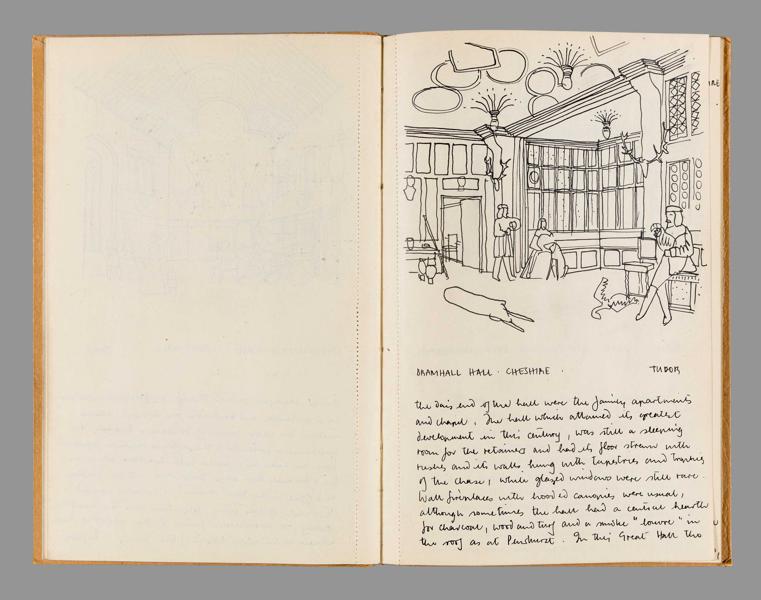 BRAMHALL HALL · CHESHIRE · TUDOR
the dais end of the hall were the family apartments
and chapel. The hall which attained its greatest
development in this century, was still a sleeping
room for the retainers and had its floor strewn with
rushes and its walls hung with tapestries and trophies
of the chase, while glazed windows were still rare.
Wall fireplaces with hooded canopies were usual,
although sometimes the hall had a central hearth
for charcoal, wood and turf and a smoke "louvre" in
the roof as at Penshurst. In this Great Hall the